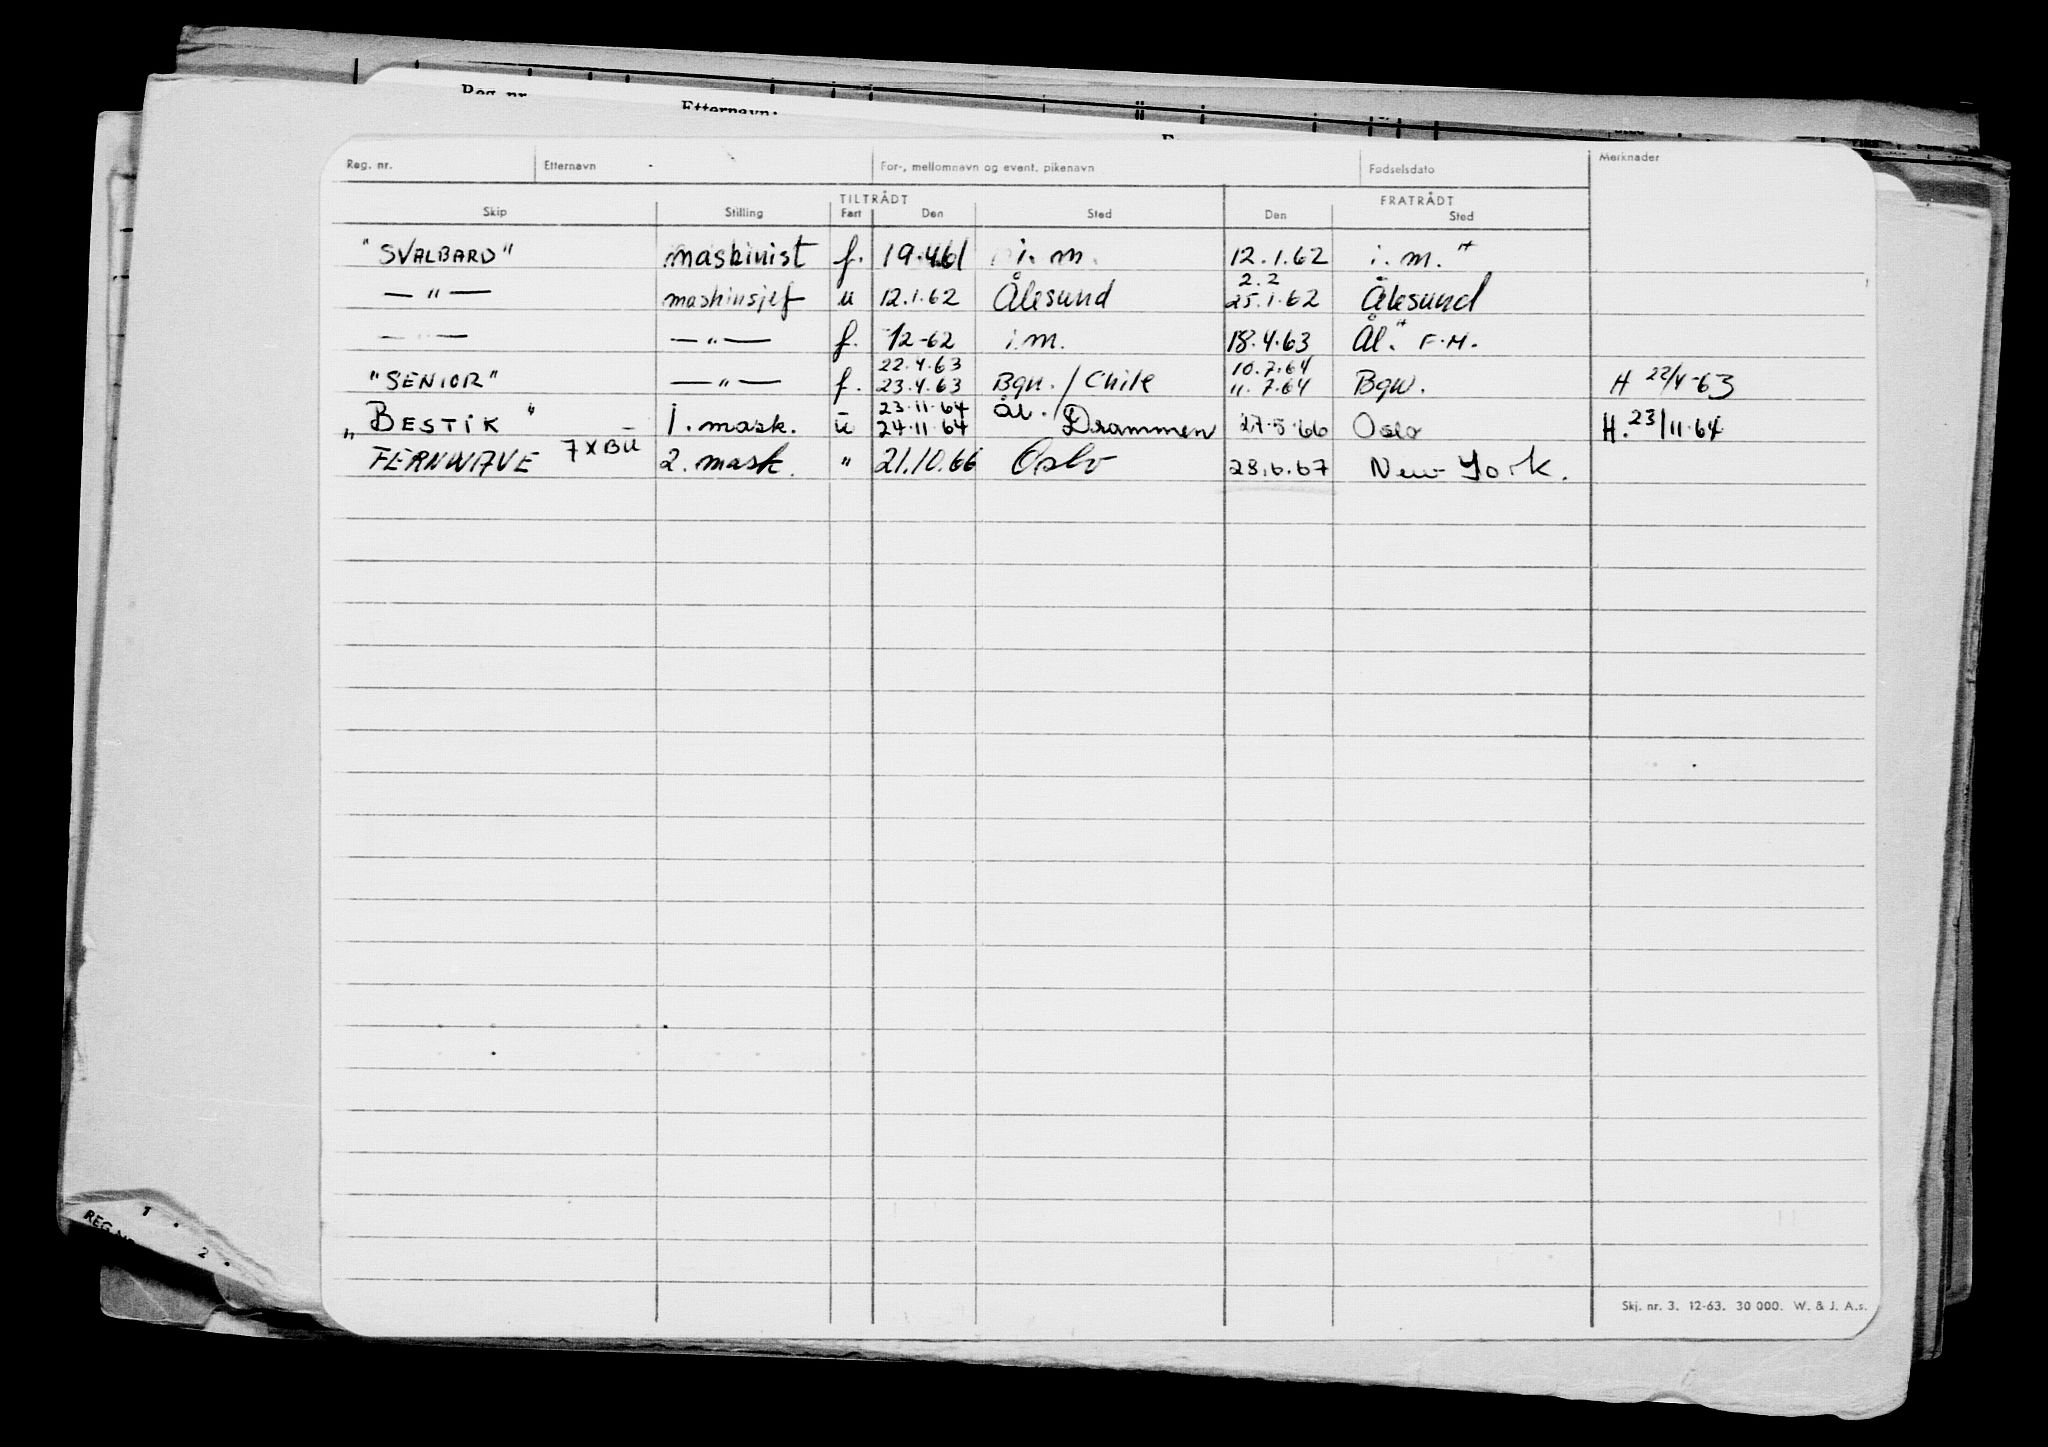 Reg. nr. Etternavn:
Reg. nr. Etternavn For-, mellomnavn og event. pikenavn Fødselsdato Merknader
TILTRÅDT FRATRÅDT
Skip Stilling Fart Den Sted Den Sted
"SVALBARD" maskinist f. 19.4.61 i. m. 12.1.62 i. m. "
2.2
— " — maskinsjef u 12.1.62 Ålesund 25.1.62 Ålesund
— " — — " — f. 1/2-62 i.m. 18.4.63 Ål. " F.M.
22.4.63 10.7.64
"SENIOR" — " — f. 23.4.63 Bgn. / Chile 11.7.64 Bgn. H 22/4-63
23.11.64 Ål. /
"BESTIK" 1. mask. u 24.11.64 Drammen 27.5.66 Oslo H. 23/11.64
FERNWAVE 7 X BU 2. mask. " 21.10.66 Oslo 28.6.67 New York.
Skj. nr. 3. 12-63. 30 000. W. & J. A.s.
1.
REG. NR.
2.